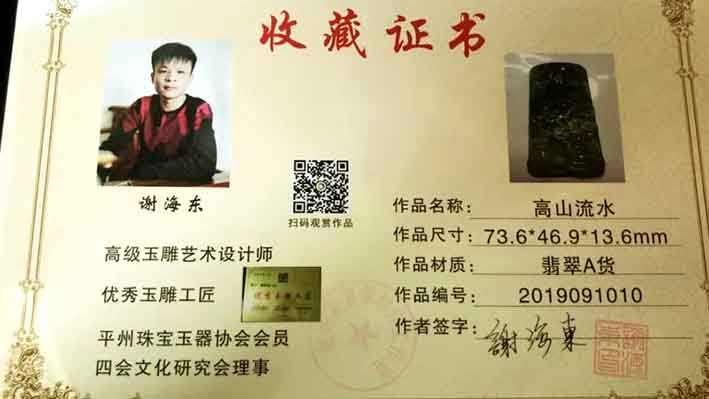 收藏证书
谢海东
扫码观赏作品
高级玉雕艺术设计师
优秀玉雕工匠
平州珠宝玉器协会会员
四会文化研究会理事
作品名称: 高山流水
作品尺寸: 73.6*46.9*13.6mm
作品材质: 翡翠A货
作品编号: 2019091010
作者签字: 謝海東